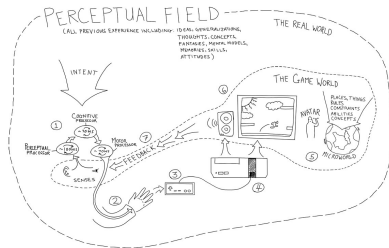 PERCEPTUAL FIELD
(ALL PREVIOUS EXPERIENCE INCLUDING: IDEAS, GENERALIZATIONS,
THOUGHTS, CONCEPTS,
FANTASIES, MENTAL MODELS,
MEMORIES, SKILLS,
ATTITUDES)
THE REAL WORLD
INTENT
THE GAME WORLD
COGNITIVE
PROCESSOR
1
PERCEPTUAL
PROCESSOR
MOTOR
PROCESSOR
SENSES
2
3
4
5
6
7
FEEDBACK
AVATAR
POS
PLACES, THINGS
CONSTRAINTS
ABILITIES
CONCEPTS
MICROWORLD